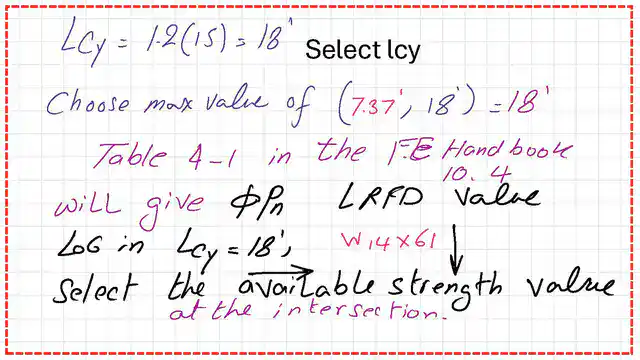 Lcy = 1.2(15) = 18'
Select lcy
Choose max value of (7.37', 18') = 18'
Table 4-1 in the FE Handbook
10.4
will give ϕPn LRFD value
LOG in Lcy = 18', W14x61
Select the available strength value
at the intersection.